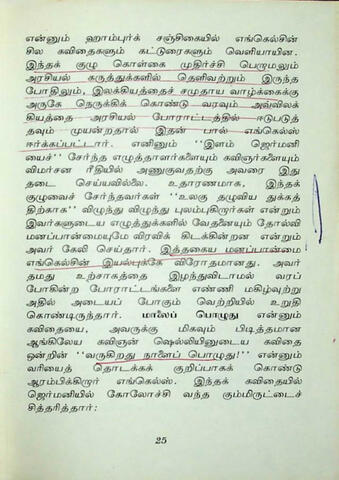 என்னும் ஹாம்பர்க் சஞ்சிகையில் எங்கெல்சின்
சில கவிதைகளும் கட்டுரைகளும் வெளியாயின.
இந்தக் குழு கொள்கை முதிர்ச்சி பெருமலும்
அரசியல் கருத்துக்களில் தெளிவற்றும் இருந்த
போதிலும், இலக்கியத்தைச் சமுதாய வாழ்க்கைக்கு
அருகே நெருக்கிக் கொண்டு வரவும் அவ்விலக்
கியத்தை அரசியல் போராட்டத்தில் ஈடுபடுத்
தவும் முயன்றதால் இதன் பால் எங்கெல்ஸ்
ஈர்க்கப்பட்டார். எனினும் "இளம் ஜெர்மனி
யைச்" சேர்ந்த எழுத்தாளர்களையும் கவிஞர்களையும்
விமர்சன ரீதியில் அணுகுவதற்கு அவரை இது
தடை செய்யவில்லை. உதாரணமாக, இந்தக்
குழுவைச் சேர்ந்தவர்கள் "உலகு தழுவிய துக்கத்
திற்காக" விழுந்து விழுந்து புலம்புகிறார்கள் என்றும்
இவர்களுடைய எழுத்துக்களில் வேதனையும் தோல்வி
மனப்பான்மையுமே விரவிக் கிடக்கின்றன என்றும்
அவர் கேலி செய்தார். இத்தகைய மனப்பான்மை
எங்கெல்சின் இயல்புக்கே விரோதமானது. அவர்
தமது உற்சாகத்தை இழந்துவிடாமல் வரப்
போகின்ற போராட்டங்களை எண்ணி மகிழ்வுற்று
அதில் அடையப் போகும் வெற்றியில் உறுதி
கொண்டிருந்தார். மாலைப் பொழுது என்னும்
கவிதையை, அவருக்கு மிகவும் பிடித்தமான
ஆங்கிலேய கவிஞன் ஷெல்லியினுடைய கவிதை
ஒன்றின் "வருகிறது நாளைப் பொழுது!" என்னும்
வரியைத் தொடக்கக் குறிப்பாகக் கொண்டு
ஆரம்பிக்கிறார் எங்கெல்ஸ். இந்தக் கவிதையில்
ஜெர்மனியில் கோலோச்சி வந்த கும்மிருட்டைச்
சித்தரித்தார்:
25